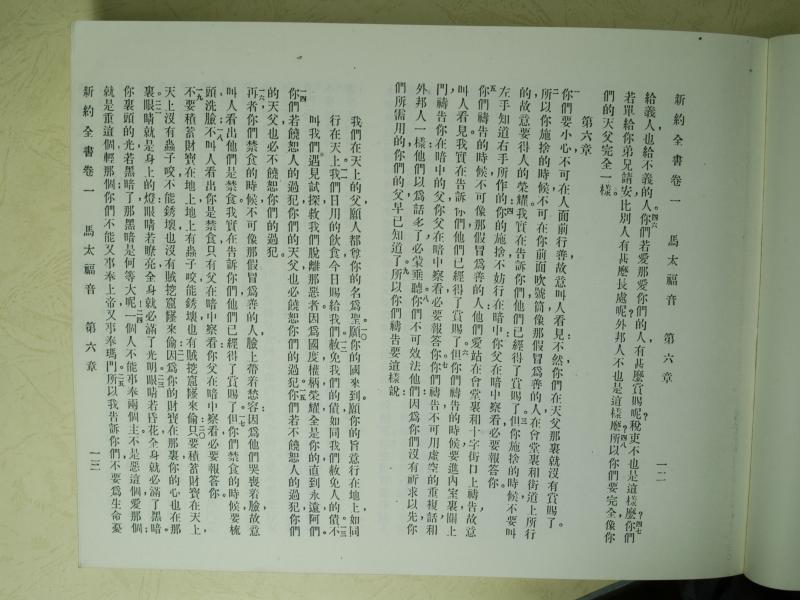 新約全書卷一 馬太福音 第六章 一二
給義人也給不義的人、你們若愛那愛你們的人有甚麼賞賜呢、稅吏不也是這樣麼、你們
若單給你弟兄請安、比別人有甚麼長處呢、外邦人不也是這樣麼、所以你們要完全、像你
們的天父完全一樣。
第六章
你們要小心、不可在人面前行善、故意叫人看見、不然、你們在天父那裏就沒有賞賜了。
所以你施捨的時候、不可在你前面吹號筒、像那假冒爲善的人在會堂裏和街道上所行
的、故意要得人的榮耀、我實在告訴你們、他們已經得了賞賜了、但你施捨的時候、不要叫
左手知道右手所作的、你的施捨不妨行在暗中、你父在暗中察看、必要報答你。
你們禱告的時候、不可像那假冒爲善的人、他們愛站在會堂裏和十字街口上禱告、故意
叫人看見、我實在告訴你們、他們已經得了賞賜了、但你們禱告的時候、要進內室裏關上
門、禱告你在暗中的父、你父在暗中察看、必要報答你、你們禱告、不可用虛空的重複話、和
外邦人一樣、他們以爲話多了必蒙垂聽、你們不可效法他們、因爲你們沒有祈求以先、你
們所需用的、你們的父早已知道了、所以你們禱告要這樣說、
我們在天上的父、願人都尊你的名爲聖、願你的國來到、願你的旨意行在地上、如同
行在天上、我們日用的飲食、今日賜給我們、赦免我們的債、如同我們赦免人的債、不
叫我們遇見試探、救我們脫離那惡者、因爲國度、權柄、榮耀、全是你的、直到永遠、阿們
你們若饒恕人的過犯、你們的天父也必饒恕你們的過犯、你們若不饒恕人的過犯、你們
的天父也必不饒恕你們的過犯。
再者、你們禁食的時候、不可像那假冒爲善的人、臉上帶着愁容、因爲他們哭喪着臉、故意
叫人看出他們是禁食、我實在告訴你們、他們已經得了賞賜了、但你們禁食的時候、要梳
頭洗臉、不叫人看出你是禁食、只有父在暗中察看、你父在暗中察看、必要報答你。
不要積蓄財寶在地上、地上有蟲子咬、能銹壞、也有賊挖窟窿來偷、只要積蓄財寶在天上、
天上沒有蟲子咬、不能銹壞、也沒有賊挖窟窿來偷、因爲你的財寶在那裏、你的心也在那
裏、眼睛就是身上的燈、眼睛若瞭亮、全身就必滿了光明、眼睛若昏花、全身就必滿了黑暗
你裏頭的光若黑暗了、那黑暗是何等大呢、一個人不能事奉兩個主、不是惡這個愛那個、
就是重這個輕那個、你們不能又事奉上帝、又事奉瑪門、所以我告訴你們、不要爲生命憂
新約全書卷一 馬太福音 第六章 一三